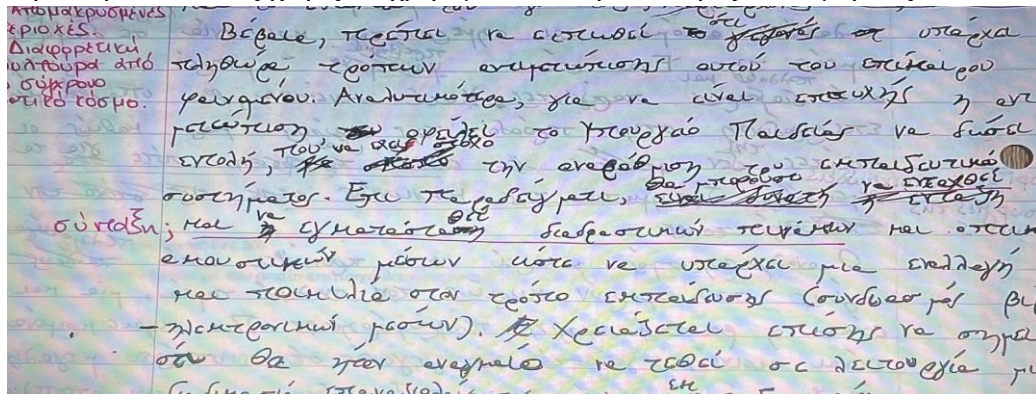 Απομακρυσμένες
εριοχές.
Διαφορετική
ουλτούρα από
σύγχρονο
τικό κόσμο.
Βέβαια, πρέπει να ειπωθεί ότι υπάρχει
πληθώρα τρόπων αντιμετώπισης αυτού του επίκαιρου
φαινομένου. Αναλυτικότερα, για να είναι επιτυχής η αντι
μετώπιση οφείλει το Υπουργείο Παιδείας να δώσει
εντολή, που να έχει στόχο την αναβάθμιση του εκπαιδευτικό
συστήματος. Επί παραδείγματι, θα μπορούσε να ενταχθεί
σύνταξη; και να εγκατασταθεί διαδραστικών κειμένων και οπτικ
ακουστικών μέσων ώστε να υπάρχει μία εναλλαγή
και ποικιλία στον τρόπο εκπαίδευσης (συνδυασμός βι
- ηλεκτρονικών μέσων). Χρειάζεται επίσης να σημει
ότι θα ήταν αναγκαίο να τεθεί σε λειτουργία μι